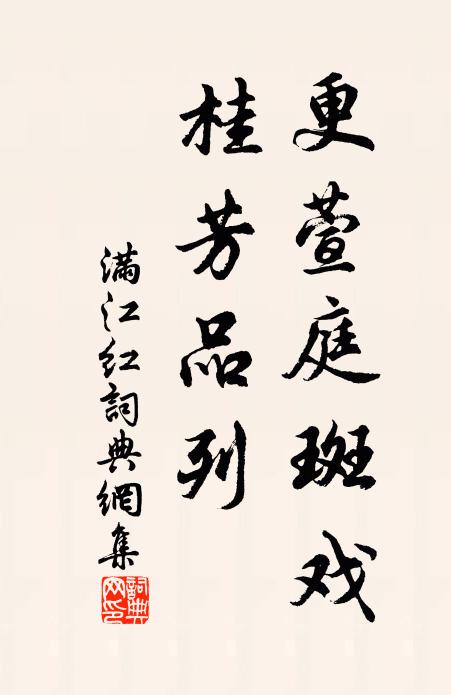 更萱庭斑戏
桂芳品列
满江红词典網集
詞典网印